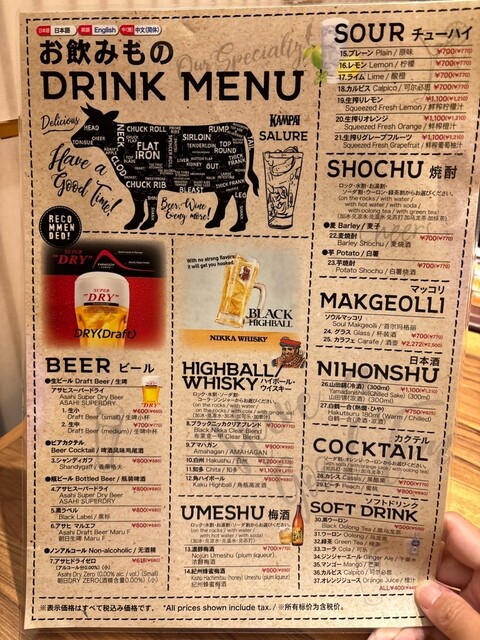 日本語 日本語 英語 English 中(簡) 中文(簡体)
お飲みもの
DRINK MENU
Our Specialty!
Delicious
HEAD
CHEEK
TONGUE
NECK
CLOD
CHUCK ROLL
FLAT IRON
CHUCK RIB
SIRLOIN
TENDERLOIN
RUMP
TOP ROUND
THICK FRANK
BREAST
LEG
Have a Good Time!
Beer, Wine & Going more!
KAMPAI
SALURE
RECOMMENDED!
SUPER "DRY"
DRY〈Draft〉
With no strong flavors,
it will get you hooked.
BLACK
HIGHBALL
NIKKA WHISKY
BEER ビール
●生ビール Draft Beer / 生啤
アサヒスーパードライ
Asahi Super Dry Beer
ASAHI SUPERDRY
1. 生小 ¥600(¥660)
Draft Beer (small) / 生啤小杯
2. 生中 ¥700(¥770)
Draft Beer (medium) / 生啤中杯
●ビアカクテル
Beer Cocktail / 啤酒风味鸡尾酒
3. シャンディガフ ¥800(¥880)
Shandygaff / 香蒂格夫
●瓶ビール Bottled Beer / 瓶装啤酒
4. アサヒスーパードライ ¥800(¥880)
Asahi Super Dry Beer
ASAHI SUPERDRY
5. 黒ラベル ¥800(¥880)
Black Label / 黑标
6. アサヒ マルエフ ¥800(¥880)
Asahi Draft Beer Maru F
朝日生啤 Maru F
●ノンアルコール Non-alcoholic / 无酒精
7. アサヒドライゼロ ¥618(¥680)
(アルコール分0.00% 小)
Asahi Dry Zero (0.00% alc / vol.) (Small)
朝日DRY ZERO(酒精含量0.00%) (小)
HIGHBALL/ ハイボール・
WHISKY ウイスキー
8. ブラックニッカクリアブレンド ¥700(¥770)
Black Nikka Clear Blend
9. アマハガン ¥1,000
Amahagan / AMAHAGAN
10. 白州 Hakushu / 白州 ¥1,200
11. 知多 Chita / 知多 ¥1,100
12. 角ハイボール ¥800(¥880)
Kaku Highball / 角瓶高波酒
UMESHU 梅酒
13. 濃醇梅酒 ¥700(¥770)
Nojun Umeshu (plum liqueur)
浓醇梅酒
14. 紀州蜂蜜梅酒 ¥800(¥880)
Kishu Hachimitsu (honey) Umeshu (plum liqueur)
紀州蜂蜜梅酒
SOUR チューハイ
15. プレーン Plain / 原味 ¥700(¥770)
16. レモン Lemon / 柠檬 ¥700(¥770)
17. ライム Lime / 酸橙 ¥700(¥770)
18. カルピス Calpico / 可尔必思 ¥700(¥770)
19. 生搾りレモン ¥1,100(¥1,210)
Squeezed Fresh Lemon / 鲜榨柠檬汁
20. 生搾りオレンジ ¥1,100(¥1,210)
Squeezed Fresh Orange / 鲜榨橙汁
21. 生搾りグレープフルーツ ¥1,100(¥1,210)
Squeezed Fresh Grapefruit / 鲜榨葡萄柚汁
SHOCHU 焼酎
ロック・水割・お湯割・
ソーダ割・ウーロン・緑茶割からお選びください。
(on the rocks / with water /
with hot water / with soda /
with oolong tea / with green tea)
●麦 Barley / 麦子
22. 麦焼酎 ¥700(¥770)
Barley Shochu / 麦烧酒
●芋 Potato / 白薯
23. 芋焼酎 ¥700(¥770)
Potato Shochu / 白薯烧酒
マッコリ
MAKGEOLLI
ソウルマッコリ
Soul Makgeolli / 首尔玛格丽
24. グラス Glass / 杯装酒 ¥700(¥770)
25. カラフェ Carafe / 酒壶 ¥2,272(¥2,500)
日本酒
NIHONSHU
26. 山田錦(冷酒) (300ml) ¥1,100(¥1,210)
Yamadanishiki(Chilled Sake) (300ml)
山田锦(凉酒) (300ml)
27. 白鶴一合(熱燗・ひや) ¥700(¥770)
Hakutsuru 180ml (Warm / Chilled)
白鹤一合(烫酒・凉酒)
カクテル
COCKTAIL
28. カシス Cassis / 黑醋栗 ¥700(¥770)
29. ピーチ Peach / 蜜桃 ¥800(¥880)
ソフトドリンク
SOFT DRINK
30. 黒ウーロン ¥500
Black Oolong Tea / 黑乌龙茶
31. ウーロン Oolong / 乌龙
32. 緑茶 Green Tea / 绿茶
33. コーラ Cola / 可乐
34. ジンジャーエール Ginger Ale / 干姜水
35. マンゴー Mango / 芒果
36. カルピス Calpico / 可尔必思
37. オレンジジュース Orange Juice / 橙汁
ALL¥400
※表示価格はすべて税込み価格です。 *All prices shown include tax. / ※所有标价为含税价。